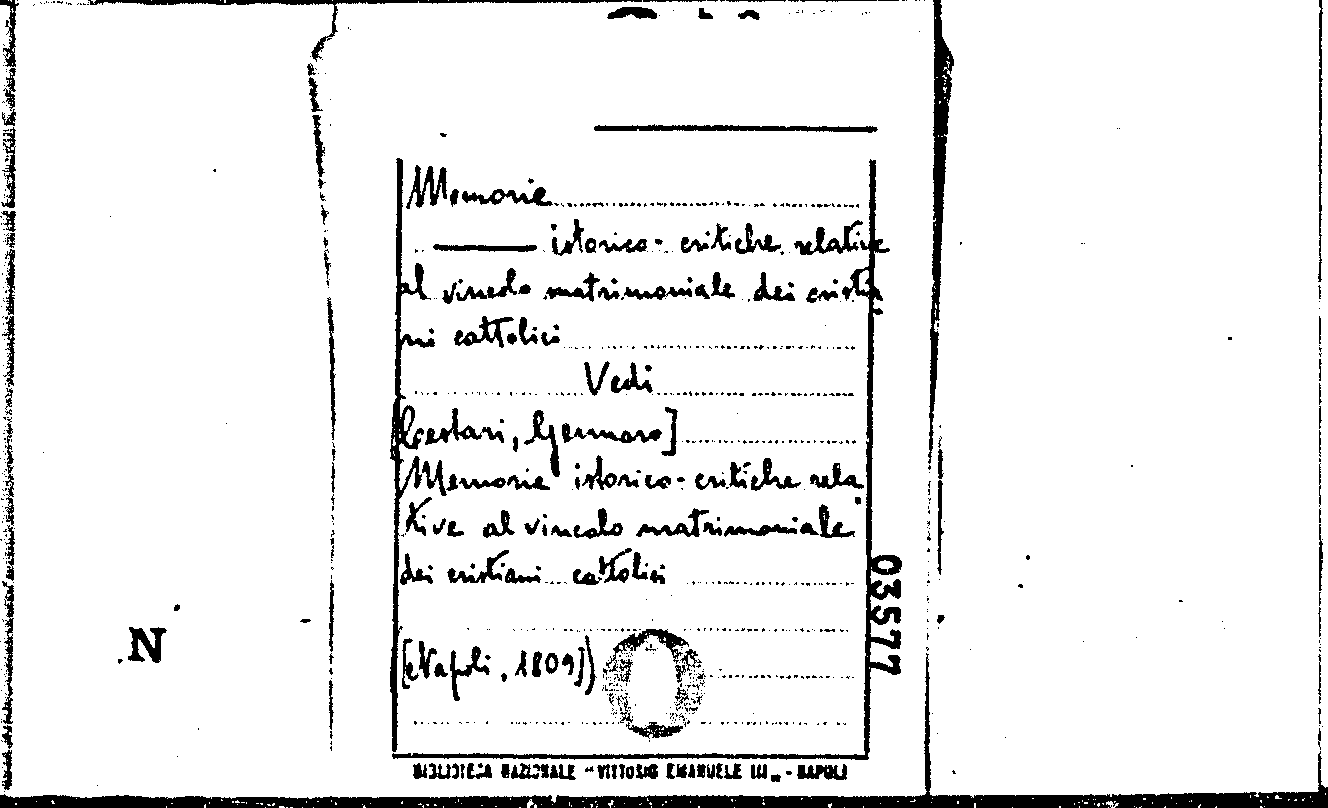 Memorie
istorico-critiche relative
al vincolo matrimoniale dei cristia
ni cattolici
Vedi
[Cestari, Gennaro]
Memorie istorico-critiche rela
tive al vincolo matrimoniale
dei cristiani cattolici
[Napoli, 1809])
BIBLIOTECA NAZIONALE "VITTORIO EMANUELE III„ - NAPOLI
03577
N